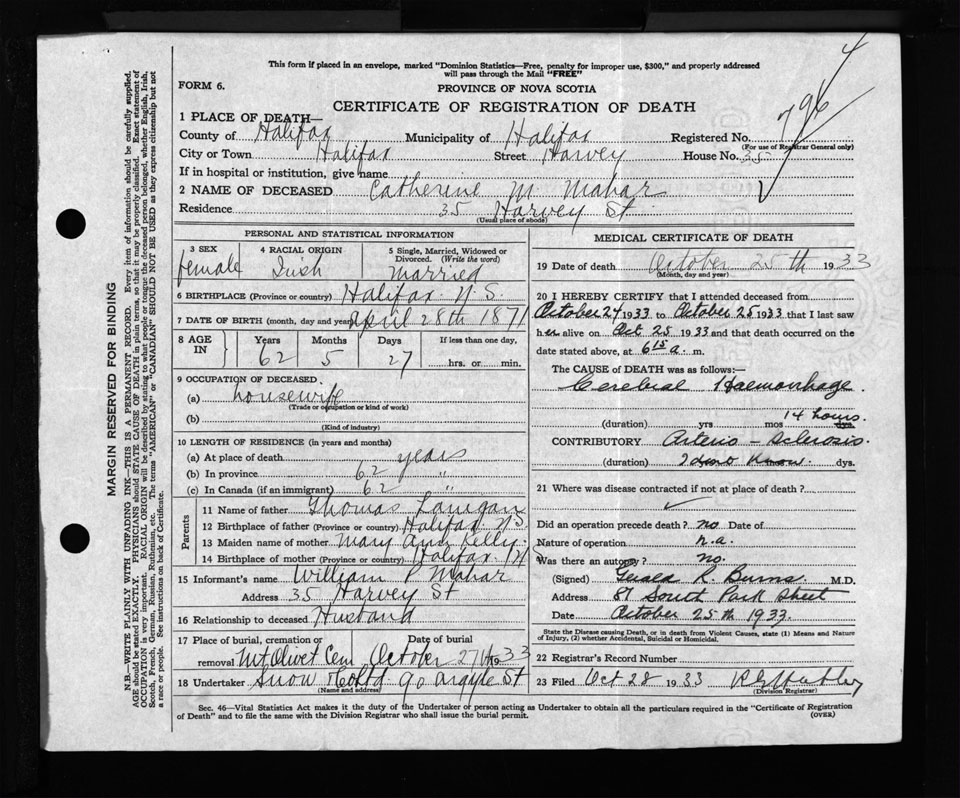 This form if placed in an envelope, marked "Dominion Statistics—Free, penalty for improper use, $300," and properly addressed
will pass through the Mail "FREE"
FORM 6.
PROVINCE OF NOVA SCOTIA
CERTIFICATE OF REGISTRATION OF DEATH
4
796
1 PLACE OF DEATH—
County of Halifax Municipality of Halifax Registered No.
(For use of Registrar General only)
City or Town Halifax Street Harvey House No. 35
If in hospital or institution, give name
2 NAME OF DECEASED Catherine M. Mahar
Residence 35 Harvey St
(Usual place of abode)
PERSONAL AND STATISTICAL INFORMATION
3 SEX 4 RACIAL ORIGIN 5 Single, Married, Widowed or Divorced. (Write the word)
female Irish married
6 BIRTHPLACE (Province or country) Halifax N.S.
7 DATE OF BIRTH (month, day and year) April 28th 1871
8 AGE IN Years Months Days If less than one day,
62 5 27 hrs. or min.
9 OCCUPATION OF DECEASED.
(a) housewife
(Trade or occupation or kind of work)
(b)
(Kind of industry)
10 LENGTH OF RESIDENCE (in years and months)
(a) At place of death 62 years
(b) In province 62 "
(c) In Canada (if an immigrant) 62 "
Parents
11 Name of father Thomas Lanigan
12 Birthplace of father (Province or country) Halifax N.S.
13 Maiden name of mother Mary Ann Kelly
14 Birthplace of mother (Province or country) Halifax
15 Informant's name William P Mahar
Address 35 Harvey St
16 Relationship to deceased Husband
17 Place of burial, cremation or removal Mt Olivet Cem Date of burial October 27th 1933
18 Undertaker Snow & Co Ltd 90 Argyle St
(Name and address)
MEDICAL CERTIFICATE OF DEATH
19 Date of death October 25th 1933
(Month, day and year)
20 I HEREBY CERTIFY that I attended deceased from
October 24 1933 to October 25 1933 that I last saw
her alive on Oct 25 1933 and that death occurred on the
date stated above, at 6 15 a. m.
The CAUSE of DEATH was as follows:—
Cerebral Haemorrhage.
(duration) yrs mos 14 hours. dys.
CONTRIBUTORY Arterio-Sclerosis.
(duration) I dont know. dys.
21 Where was disease contracted if not at place of death?
Did an operation precede death? no Date of
Nature of operation n.a.
Was there an autopsy? no.
(Signed) Gerald R. Burns M.D.
Address 87 South Park Street
Date October 25th 1933.
State the Disease causing Death, or in death from Violent Causes, state (1) Means and Nature
of Injury, (2) whether Accidental, Suicidal or Homicidal.
22 Registrar's Record Number
23 Filed Oct 28 1933
(Division Registrar)
Sec. 46—Vital Statistics Act makes it the duty of the Undertaker or person acting as Undertaker to obtain all the particulars required in the "Certificate of Registration
of Death" and to file the same with the Division Registrar who shall issue the burial permit.
(OVER)
MARGIN RESERVED FOR BINDING
N.B.—WRITE PLAINLY WITH UNFADING INK—THIS IS A PERMANENT RECORD. Every item of information should be carefully supplied.
AGE should be stated EXACTLY. PHYSICIANS should STATE CAUSE OF DEATH in plain terms, so that it may be properly classified. Exact statement of
OCCUPATION is very important. RACIAL ORIGIN will be described by stating to what people or tongue the deceased person belonged, whether English, Irish,
Scotch, French, German, Russian, Ruthenian, etc. The terms "AMERICAN" or "CANADIAN" SHOULD NOT BE USED as they express citizenship but not
a race or people. See instructions on back of Certificate.